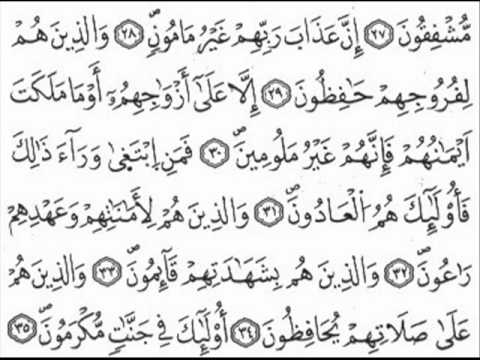 مُّشْفِقُونَ ٢٧ إِنَّ عَذَابَ رَبِّهِمْ غَيْرُ مَامُونٍ ٢٨ وَالَّذِينَ هُمْ
لِفُرُوجِهِمْ حَافِظُونَ ٢٩ إِلَّا عَلَىٰ أَزْوَاجِهِمُۥ أَوْ مَا مَلَكَتَ
اَيْمَانُهُمْ فَإِنَّهُمْ غَيْرُ مَلُومِينَ ٣٠ فَمَنِ ابْتَغَىٰ وَرَآءَ ذَالِكَ
فَأُوْلَٰٓئِكَ هُمُ الْعَادُونَ ٣١ وَالَّذِينَ هُمْ لِأَمَانَاتِهِمْ وَعَهْدِهِمْ
رَاعُونَ ٣٢ وَالَّذِينَ هُم بِشَهَادَتِهِمْ قَآئِمُونَ ٣٣ وَالَّذِينَ هُمْ
عَلَىٰ صَلَاتِهِمْ يُحَافِظُونَ ٣٤ أُوْلَٰٓئِكَ فِي جَنَّاتٍ مُّكْرَمُونَ ٣٥